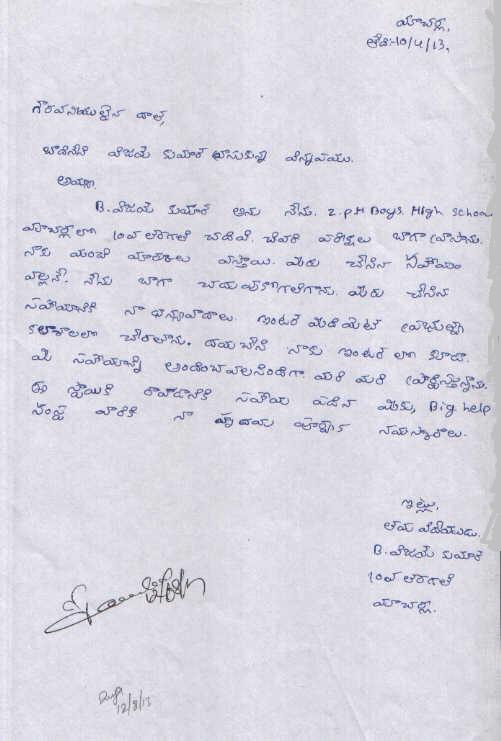 మాచర్ల,
తేది:-10/4/13,
గౌరవనీయులైన దాత,
విజయ్ కుమార్ వ్రాసుకున్న విన్నపము.
అయ్యా,
B. విజయ్ కుమార్ అను నేను. Z.P.H Boys. High School
మాచర్లలో 10వ తరగతి చదివే. చివరి పరీక్షలు బాగా వ్రాసాను.
నాకు మంచి మార్కులు వస్తాయి. మీరు చేసిన సహాయం
వల్లనే. నేను బాగా చదువుకోగలిగాను. మీరు చేసిన
సహాయానికి నా ధన్యవాదాలు. ఇంటర్ మీడియట్ ప్రభుత్వ
కళాశాలలో చేరాలను. దయచేసి నాకు ఇంటర్ లో కూడా.
మీ సహాయాన్ని అందించవలసిందిగా. మరి మరి ప్రార్థిస్తున్నాను.
ఈ స్థాయికి రావడానికి సహాయ పడిన మీకు, Big help
సంస్థ వారికి నా హృదయ పూర్వక నమస్కారాలు.
ఇట్లు,
తమ విధేయుడు.
B. విజయ్ కుమార్
10వ తరగతి
మాచర్ల.
12/8/13